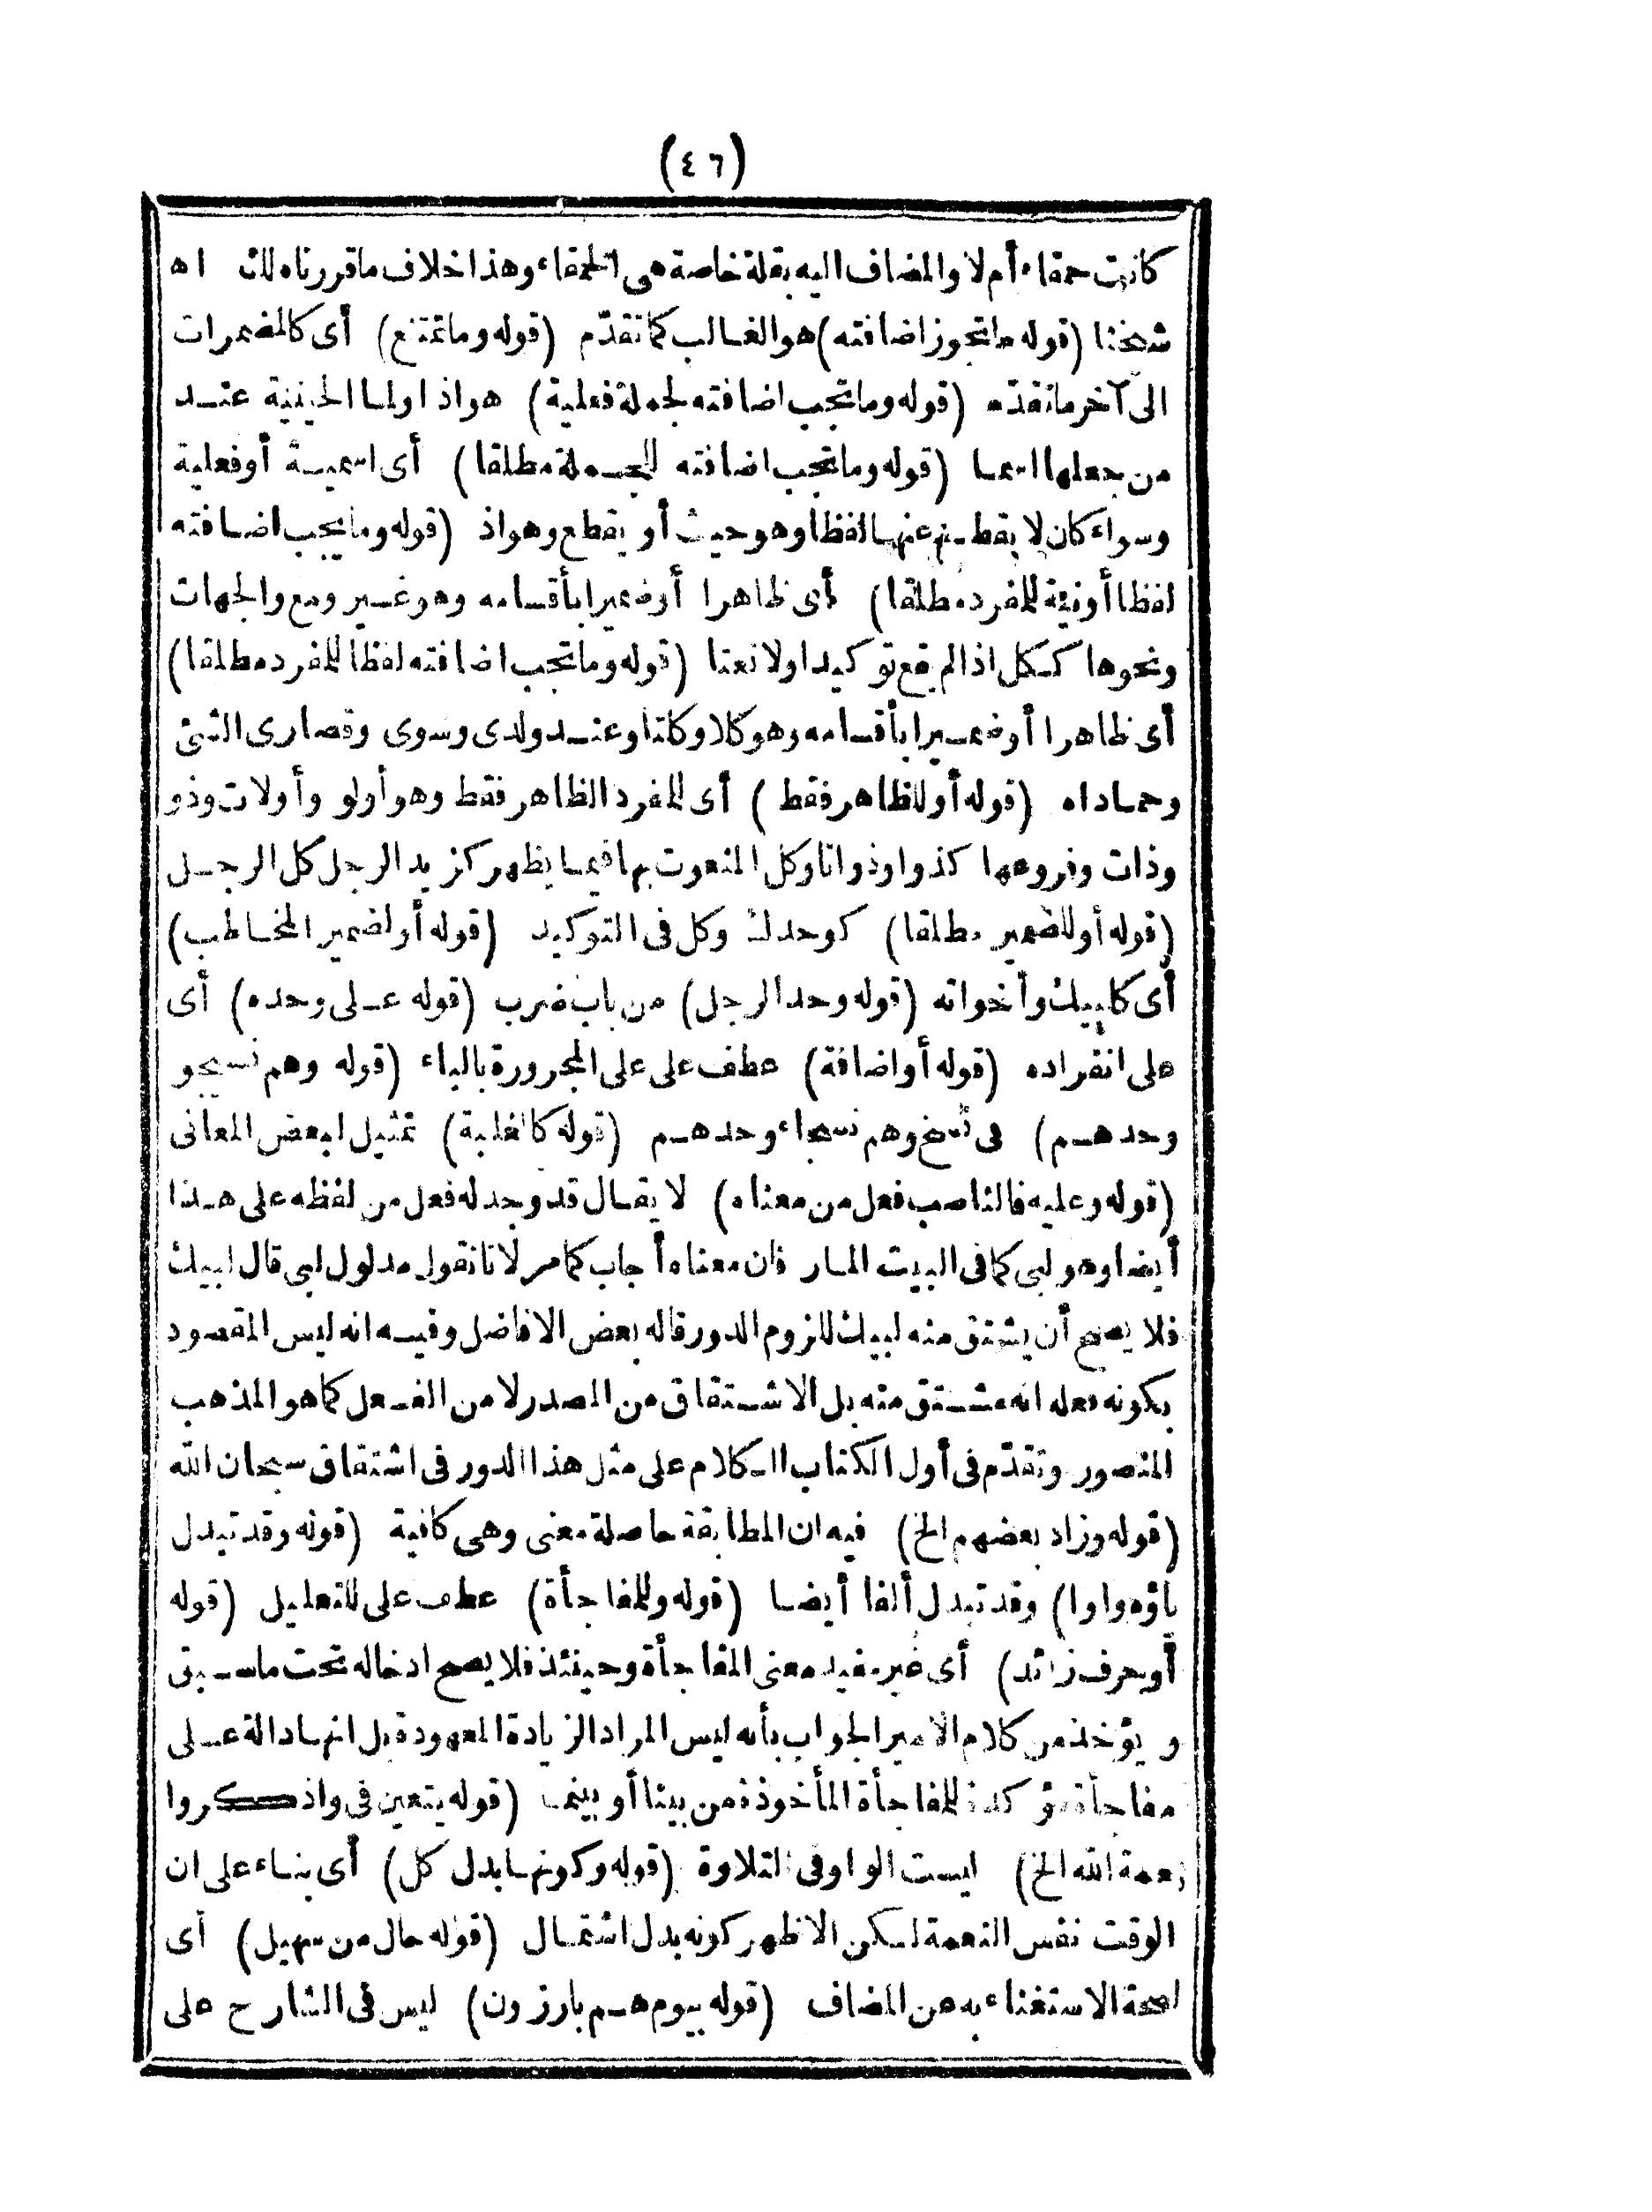 (٤٦)
كانت حمقاء أم لا والمضاف اليه بقلة خاصة هى الحمقاء وهذا خلاف ما قررناه لك اه
شيخنا (قوله ما تجوز اضافته) هو الغالب كما تقدّم (قوله وما تمتنع) أى كالمضمرات
الى آخر ما تقدّم (قوله وما تجب اضافته لجملة فعلية) هو اذا ولما الحينية عند
من جعلها اسما (قوله وما تجب اضافته للجملة مطلقا) أى اسمية أو فعلية
وسواء كان لا يقطع عنها لفظا وهو حيث أو يقطع وهو اذ (قوله وما يجب اضافته
لفظا أو نية للمفرد مطلقا) أى ظاهرا أو ضميرا بأقسامه وهو غير ومع والجهات
ونحوها ككل اذا لم يقع توكيدا ولا نعتا (قوله وما تجب اضافته لفظا للمفرد مطلقا)
أى ظاهرا أو ضميرا بأقسامه وهو كلا وكلتا وعند ولدى وسوى وقصارى الشئ
وحماداه (قوله أو للظاهر فقط) أى للمفرد الظاهر فقط وهو أولو وأولات وذو
وذات وفروعها كذوا وذواتا وكل المنعوت بها فيما يظهر كزيد الرجل كل الرجل
(قوله أو للضمير مطلقا) كوحدك وكل فى التوكيد (قوله أو لضمير المخاطب)
أى كلبيك وأخواته (قوله وحد الرجل) من باب ضرب (قوله على وحده) أى
على انفراده (قوله أو اضافة) عطف على على المجرورة بالباء (قوله وهم نسيجو
وحدهم) فى نسخ وهم نسجاء وحدهم (قوله كالغلبة) تمثيل لبعض المعانى
(قوله وعليه فالناصب فعل من معناه) لا يقال قد وجد له فعل من لفظه على هذا
أيضا وهو لبى كما فى البيت المار فان معناه أجاب كما مر لانا نقول مدلول لبى قال لبيك
فلا يصح أن يشتق منه لبيك للزوم الدور قاله بعض الافاضل وفيه انه ليس المقصود
بكونه فعله انه مشتق منه بل الاشتقاق من المصدر لا من الفعل كما هو المذهب
المنصور وتقدّم فى أول الكتاب الكلام على مثل هذا الدور فى اشتقاق سبحان الله
(قوله وزاد بعضهم الخ) فيه ان المطابقة حاصلة معنى وهى كافية (قوله وقد تبدل
ياؤه واوا) وقد تبدل ألفا أيضا (قوله وللمفاجأة) عطف على للتعليل (قوله
أو حرف زائد) أى غير مفيد معنى المفاجأة وحينئذ فلا يصح ادخاله تحت ما سبق
ويؤخذ من كلام الامير الجواب بأنه ليس المراد الزيادة المعهودة بل انها دالة على
مفاجأة مؤكدة للمفاجأة المأخوذة من بينا أو بينما (قوله يتعين فى واذكروا
نعمة الله الخ) ليست الواو فى التلاوة (قوله وكونها بدل كل) أى بناء على ان
الوقت نفس النعمة لكن الاظهر كونه بدل اشتمال (قوله حال من سهيل) أى
لصحة الاستغناء به عن المضاف (قوله بيوم هم بارزون) ليس فى الشارح على